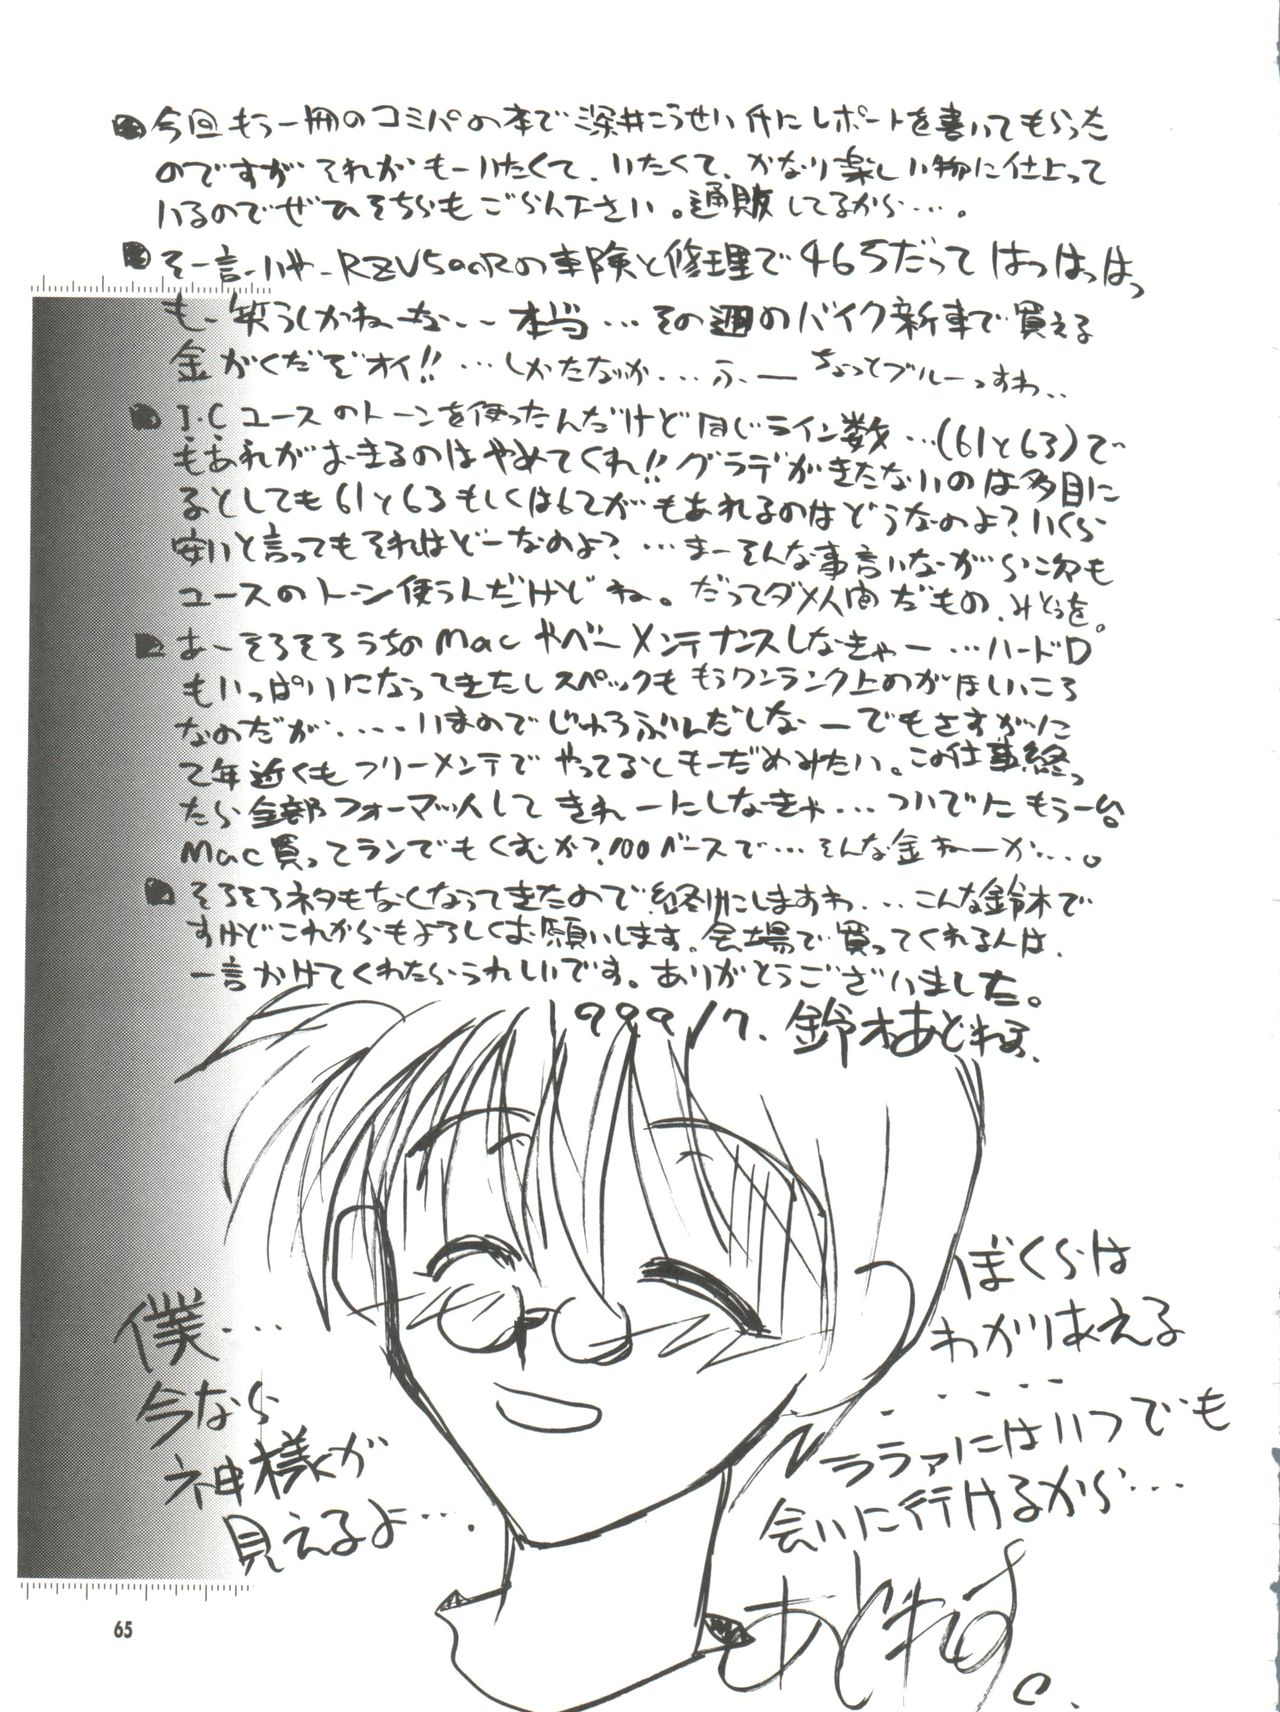 今回もう一冊のコミパの本で深井こうせい 件にレポートを書いてもらった
のですが それが もーいたくて、いたくて、かなり楽しい物に仕上って
いるのでぜひそちらもごらん下さい。通販してるから‥‥。
そー言ーいやーRZV500Rの車険と修理で465だって はっはっはっ
もー笑うしかねーなーー 本当 … その週のバイク新車で買える
金がくだぞオイ!! …しかたなか…ふー ちょっとブルーっすわ‥
I・Cユースのトーンを使ったんだけど同じライン数 …(61と63)で
もあれがおきるのはやめてくれ!! グラデがきたないのは多目に
るとしても61と63もしくは62がもあれるのはどうなのよ? いくら
安いと言ってもそれはどーなのよ? …まーそんな事言いながらも次も
ユースのトーン使うんだけどね。だってダメ人間だもの、みとぅを。
はーそろそろうちのMacやべーメンテナンスしなきゃー …ハードD
もいっぱいになってきたしスペックももうワンランク上のがほしいころ
なのだが‥‥いまのでじゅうぶんだしなーーでもさすがに
2年近くもフリーメンテでやってるしもーだめみたい。この仕事終っ
たら全部フォーマットして きれーにしなきゃ…ついでに もう一台
Mac買ってランでもくむか?100ベースで…そんな金ねーーか‥‥。
そろそろネタもなくなってきたので終りにしますわ…こんな鈴木で
すけどこれからもよろしくお願いします。会場で買ってくれる人は、
一言かけてくれたらうれしいです。ありがとうございました。
1999/7. 鈴木あどねす
ぼくらは
わかりあえる
‥‥‥
ララァにはいつでも
会いに行けるから…
僕…
今なら
神様が
見えるよ…
あどねす。
65